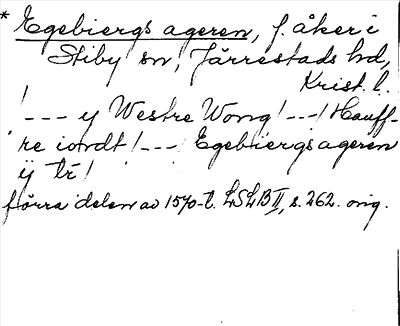 * Egebiergs ageren, f. åker i
Stiby sn, Järrestads hd,
Krist. l.
! --- y Westre Wong! ---! Hauff-
re iordt! --- Egebiergs ageren
ÿ tr !
förra delen av 1570-t. LSLB II, s. 262. orig.